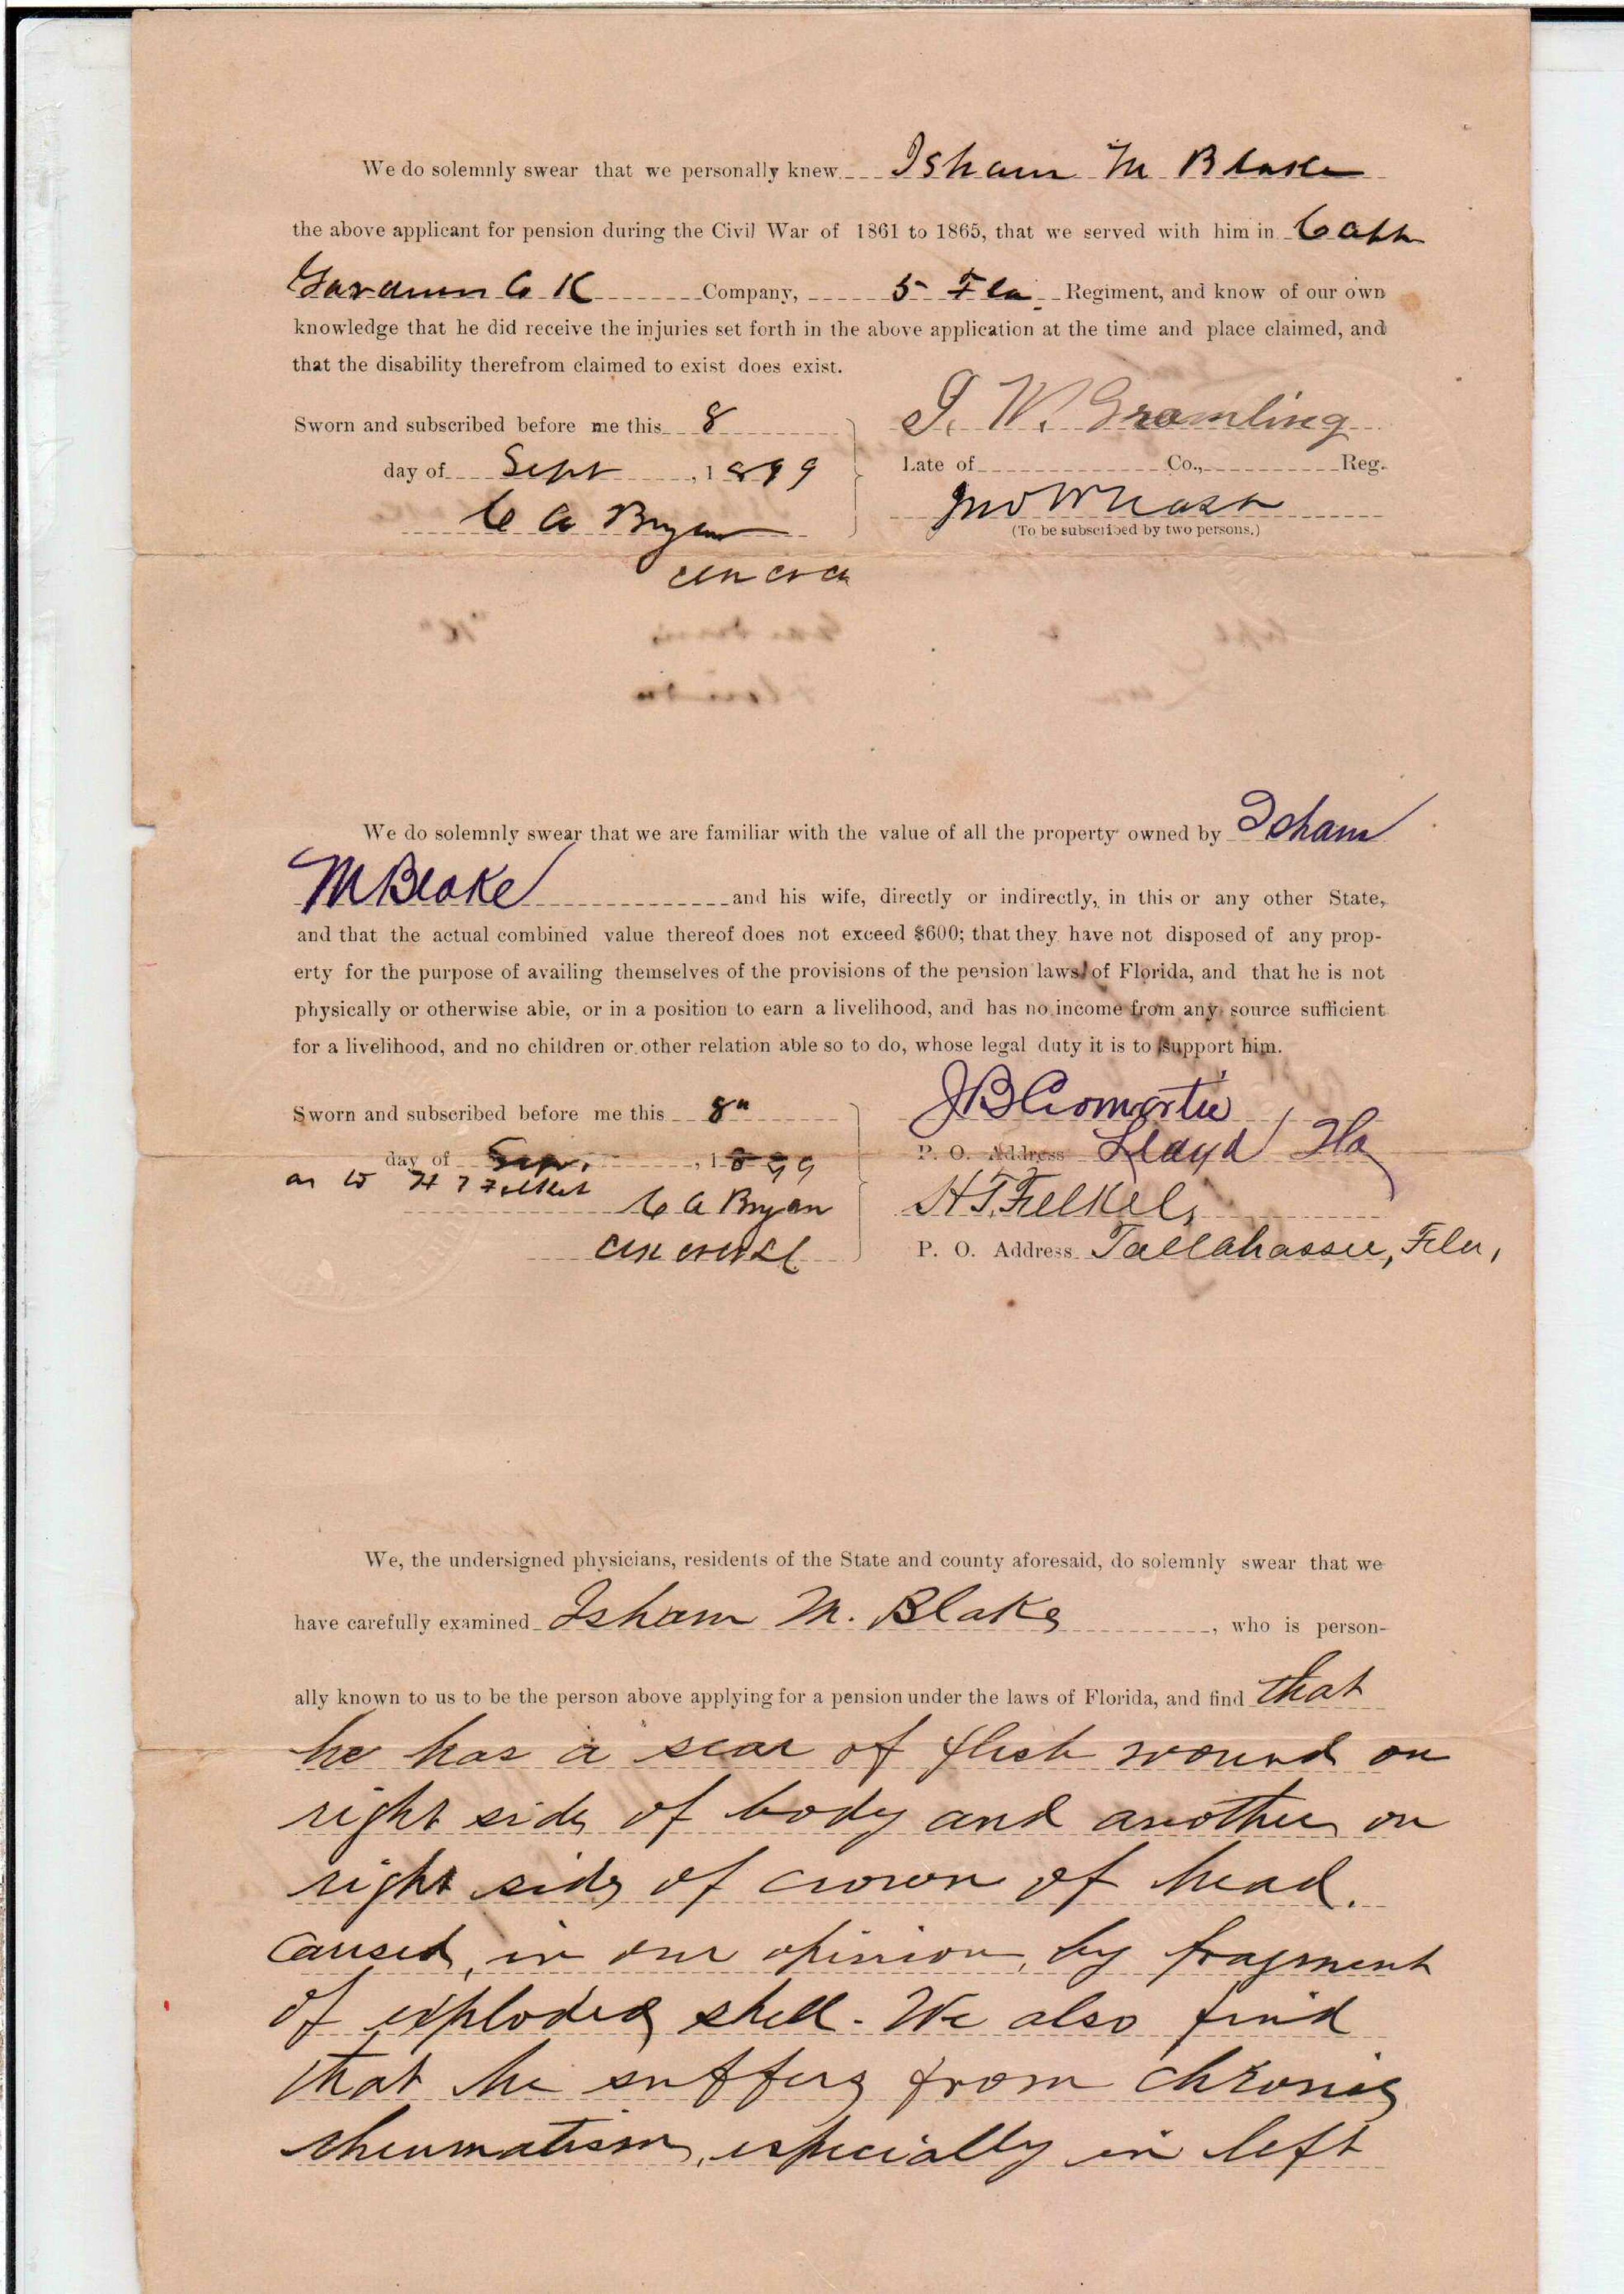 We do solemnly swear that we personally knew Isham M Blake
the above applicant for pension during the Civil War of 1861 to 1865, that we served with him in Capt
Gardner C K Company, 5 Fla Regiment, and know of our own
knowledge that he did receive the injuries set forth in the above application at the time and place claimed, and
that the disability therefrom claimed to exist does exist.
Sworn and subscribed before me this 8
day of Sept, 1899
C A Bryan
J. W. Gramling
Late of Co., Reg.
Jno W
(To be subscribed by two persons.)
We do solemnly swear that we are familiar with the value of all the property owned by Isham
M Blake and his wife, directly or indirectly, in this or any other State,
and that the actual combined value thereof does not exceed $600; that they have not disposed of any prop-
erty for the purpose of availing themselves of the provisions of the pension laws of Florida, and that he is not
physically or otherwise able, or in a position to earn a livelihood, and has no income from any source sufficient
for a livelihood, and no children or other relation able so to do, whose legal duty it is to support him.
Sworn and subscribed before me this 8"
day of Sep. , 1899
as to H T Felkel
C A Bryan
J B Cromartie
P. O. Address Lloyd Fla
H T. Felkel,
P. O. Address Tallahassee, Fla,
We, the undersigned physicians, residents of the State and county aforesaid, do solemnly swear that we
have carefully examined Isham M. Blake, who is person-
ally known to us to be the person above applying for a pension under the laws of Florida, and find that
he has a scar of flesh wound on
right side of body and another on
right side of crown of head.
caused, in our opinion, by fragment
of exploded shell. We also find
that he suffers from chronic
rheumatism, especially in left